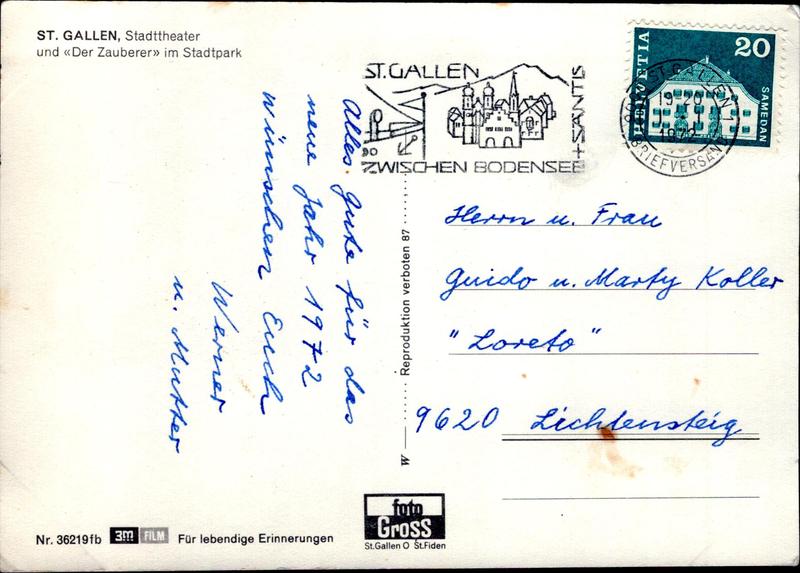 ST. GALLEN, Stadttheater
und «Der Zauberer» im Stadtpark
ST. GALLEN
+SÄNTIS
ZWISCHEN BODENSEE
HELVETIA
20
SAMEDAN
ST. GALLEN 1
19-20
1972
BRIEFVERSAND
Alles Gute für das
neue Jahr 1972
wünschen Euch
Werner
u. Mutter
W
Reproduktion verboten 87
Herrn u. Frau
Guido u. Marty Koller
"Loreto"
9620 Lichtensteig
foto
Gross
St.Gallen O St.Fiden
Nr. 36219fb 3M FILM Für lebendige Erinnerungen